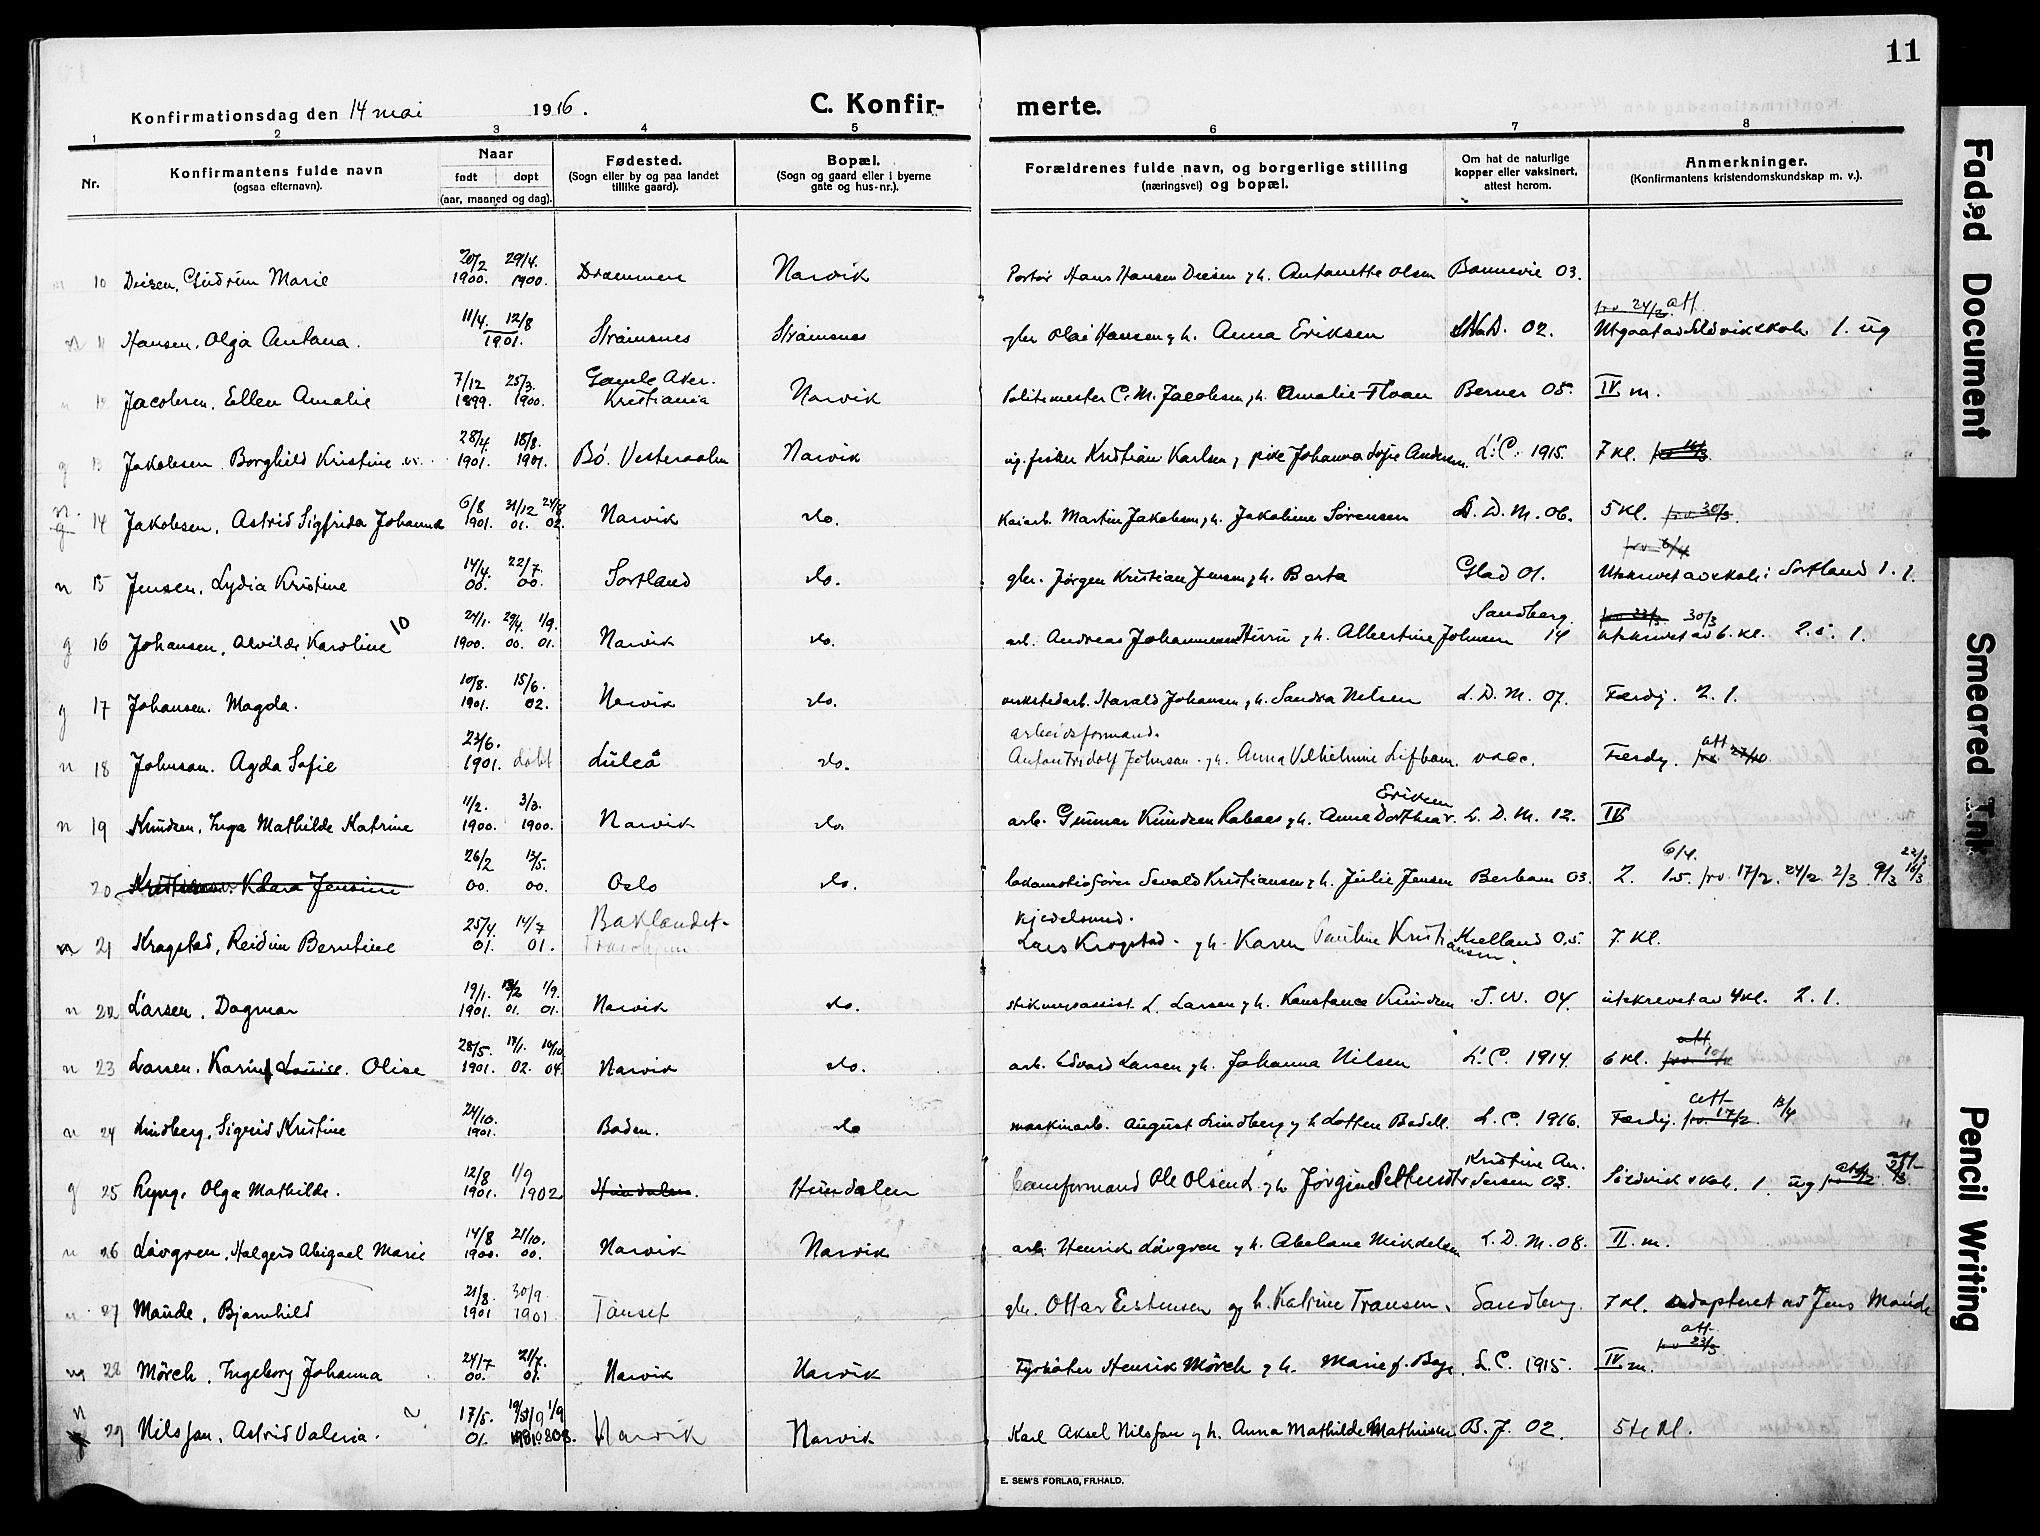 11
Konfirmationsdag den 14 mai 1916.
C. Konfir-
merte.
1 2 3 4 5 6 7 8
Nr.
Konfirmantens fulde navn
(ogsaa efternavn).
Naar
født døpt
(aar, maaned og dag).
Fødested.
(Sogn eller by og paa landet
tillike gaard).
Bopæl.
(Sogn og gaard eller i byerne
gate og hus-nr.).
Forældrenes fulde navn, og borgerlige stilling
(næringsvei) og bopæl.
Om hat de naturlige
kopper eller vaksinert,
attest herom.
Anmerkninger.
(Konfirmantens kristendomskundskap m. v.).
20/2 29/4.
10 Diesen, Gudrun Marie 1900. 1900. Drammen Narvik Portør Hans Hansen Diesen g. h. Antonette Olsen Bonnevie 03.
11/4. 12/8 prv 24/2. att.
n 11 Hansen, Olga Antona. 1901. Strømsnes Strømsnes gbr Olai Hansen g. h. Anna Eriksen 02. Utgaat av Sildvik skole 1. ug
7/12 25/3. Gamle Aker.
12 Jacobsen, Ellen Amalie 1899. 1900. Kristiania Narvik Politimester C. M. Jacobsen g. h. Amalie Floan Berner 05. IV m.
28/4. 18/8.
g 13 Jakobsen Borghild Kristine 1901. 1901. Bø. Vesteraalen Narvik ug. fisker Kristian Karlsen, pike Johanna Sofie Andersen. L. C. 1915. 7 Kl.
n. 6/8 31/12 24/8
g 14 Jakobsen, Astrid Sigfrida Johanna 1901. 01. 02. Narvik do. Kaiarb. Martin Jakobsen g. h. Jakobine Sørensen L. D. M. 06. 5 Kl. prv 30/3.
14/4. 22/7. prv 6/4
n 15 Jensen, Lydia Kristine 00. 00. Sortland do. gbr. Jørgen Kristian Jensen g. h. Berta Glad 01. Utskrevet av skole i Sortland 1. 1.
10 24/1. 29/4. 1/9. Sandberg. prv 23/3 30/3
g 16 Johansen, Alvilde Karoline 1900. 00. 01. Narvik do. arb. Andreas Johannesen g. h. Albertine Johnsen 14 utskrevet av 6. Kl. 2.5. 1.
10/8. 15/6.
g 17 Johansen. Magda. 1901. 02. Narvik do. verkstedarb. Harald Johansen g. h. Sandra Nilsen L. D. M. 07. Færdig. 2. 1.
23/6. arbeidsformand. att
n 18 Johnson. Agda Sofie 1901. døbt Luleå do. Anton Fridolf Johnson g. h. Anna Vilhelmine vacc. Færdig. prv.
11/2. 3/3. Eriksen
n 19 Knudsen, Inga Mathilde Katrine 1900. 1900. Narvik do. arb. Gunnar Knudsen Rabaas g. h. Anna Dorthea L. D. M. 12. IV
26/2 13/5. 6/4. 22/3
20 Kristiansen. Klara Jensine 00. 00. Oslo do. lokomotivfører Sevald Kristiansen g. h. Julie Jensen Berbom 03. 2. 1.5. prv. 17/2. 24/2. 2/3 9/3 16/3
25/4. 14/7 Baklandet- kjedelsmed.
n 21 Krogstad, Reidun Berntine 01. 01. Trondhjem Lars Krogstad - g. h. Karen Pauline Kristiansen. Kielland 05. 7. Kl.
19/1. 13/2 1/9.
n 22 Larsen, Dagmar 1901. 01. 01. Narvik do. stikningsassist. L. Larsen g. h. Konstance Knudsen J. W. 04. utskrevet av 4 Kl. 2. 1.
28/5. 18/1. 16/10. att
n 23 Larsen. Karin Louise. Olise 1901. 02. 04. Narvik do. arb. Edvard Larsen g. h. Johanna Nilsen L. C. 1914. 6 Kl.
24/10. att-
n 24 Lindberg, Sigrid Kristine 1901. Boden. do maskinarb. August Lindberg g. h Lotten Bodell L. C. 1916. Færdig. prv. 17/2. 13/4
12/8 1/9 Kristine An.
g 25 Olga Mathilde. 1901. 1902 Hundalen. Hundalen baneformand Ole Olsen L. g. h. Jørgine 03. Sildvik skole. 1. ug
14/8 21/10.
n 26 Løvgren, Halgerd Abigael Marie 1900. 00. Narvik Narvik arb. Henrik Løvgren g. h. Abelone Mikkelsen L. D. M. 08. II. m.
21/8. 30/9.
n 27 Maude, Bjarnhild 1901 1901 Tønset gbr. Ottar Eistensen g. h. Katrine Transen. Sandberg. 7 Kl. Adopteret ved Jens Maude
24/7. 21/7. att. prv 23/3
28 Mörch, Ingeborg Johanna 00. 01. Narvik Narvik Fyrbøter Henrik Mörch g. h. Marie f. L. C. 1915. IV m.
n 17/5. 1/9
29 Nilsson, Astrid Valeria. 01. Narvik Narvik Karl Aksel Nilsson g. h. Anna Mathilde Mathiesen B. J. 02. 5te Kl.
E. SEM'S FORLAG, FR.HALD.
Faded Document
Smeared Ink
Pencil Writing